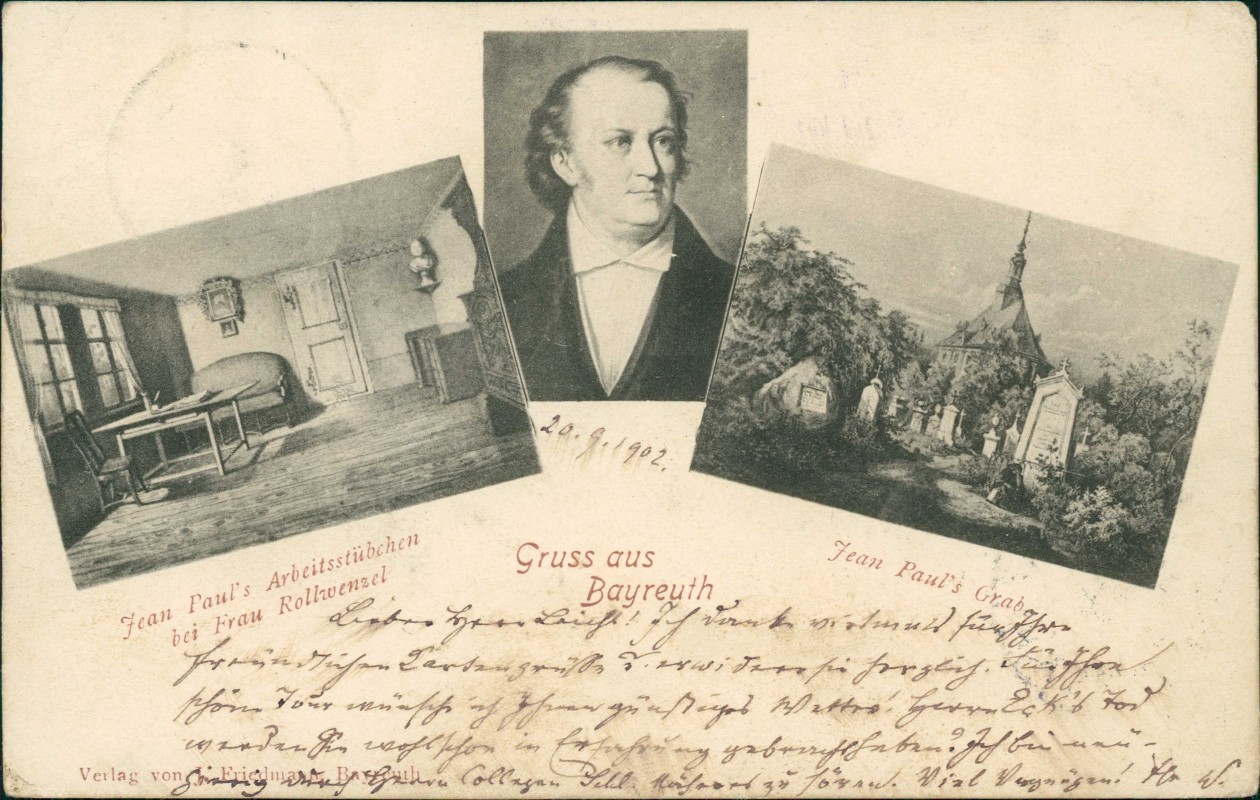 20.9.1902.
Jean Paul's Arbeitsstübchen
bei Frau Rollwenzel
Gruss aus
Bayreuth
Jean Paul's Grab
Lieber Herr Leicht! Ich danke vielmals für Ihre
freundlichen Kartengrüße u. erwidere sie herzlich. Für Ihre
schöne Tour wünsche ich Ihnen günstiges Wetter! Herrn Eck's Tod
werden Sie wohl schon in Erfahrung gebracht haben? Ich bin neu-
gierig durch Herrn Collegen Näheres zu hören. Viel Vergnügen! Ihr W.
Verlag von Friedmann, Bayreuth